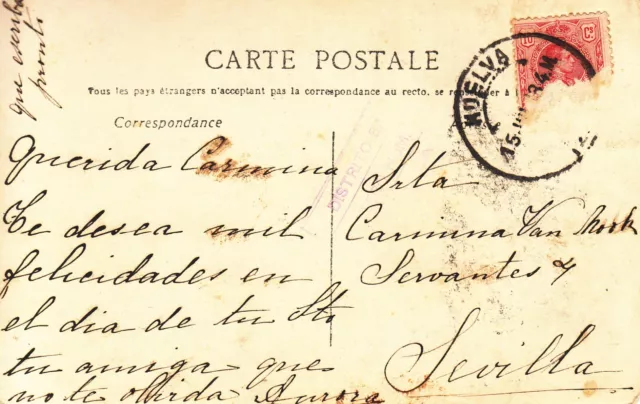 que escriba
pronti
CARTE POSTALE
Tous les pays étrangers n'acceptent pas la correspondance au recto, se
Correspondance
10 Cs
HUELVA
15
Querida Carmina
Te desea mil
felicidades en
el dia de tu Sto
tu amiga que
no te olvida Aurora
DISTRITO
Srta
Carmina Van
Servantes 4
Sevilla